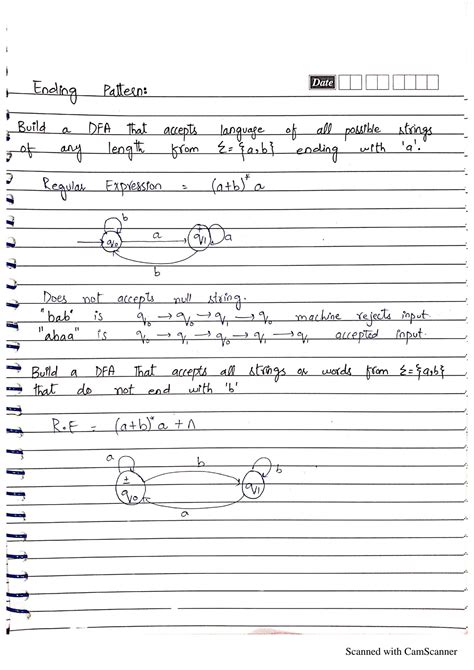 Date
Ending Pattern:
Build a DFA that accepts language of all possible strings
of any length from Σ={a,b} ending with 'a'.
Regular Expression = (a+b)* a
b
q0 a + q1 a
b
Does not accepts null string.
"bab" is q0 → q0 → q1 → q0 machine rejects input.
"abaa" is q0 → q1 → q0 → q1 → q1 accepted input.
Build a DFA that accepts all strings or words from Σ={a,b}
that do not end with 'b'
R.E = (a+b)* a + Λ
a b b
± q0 q1
a
Scanned with CamScanner